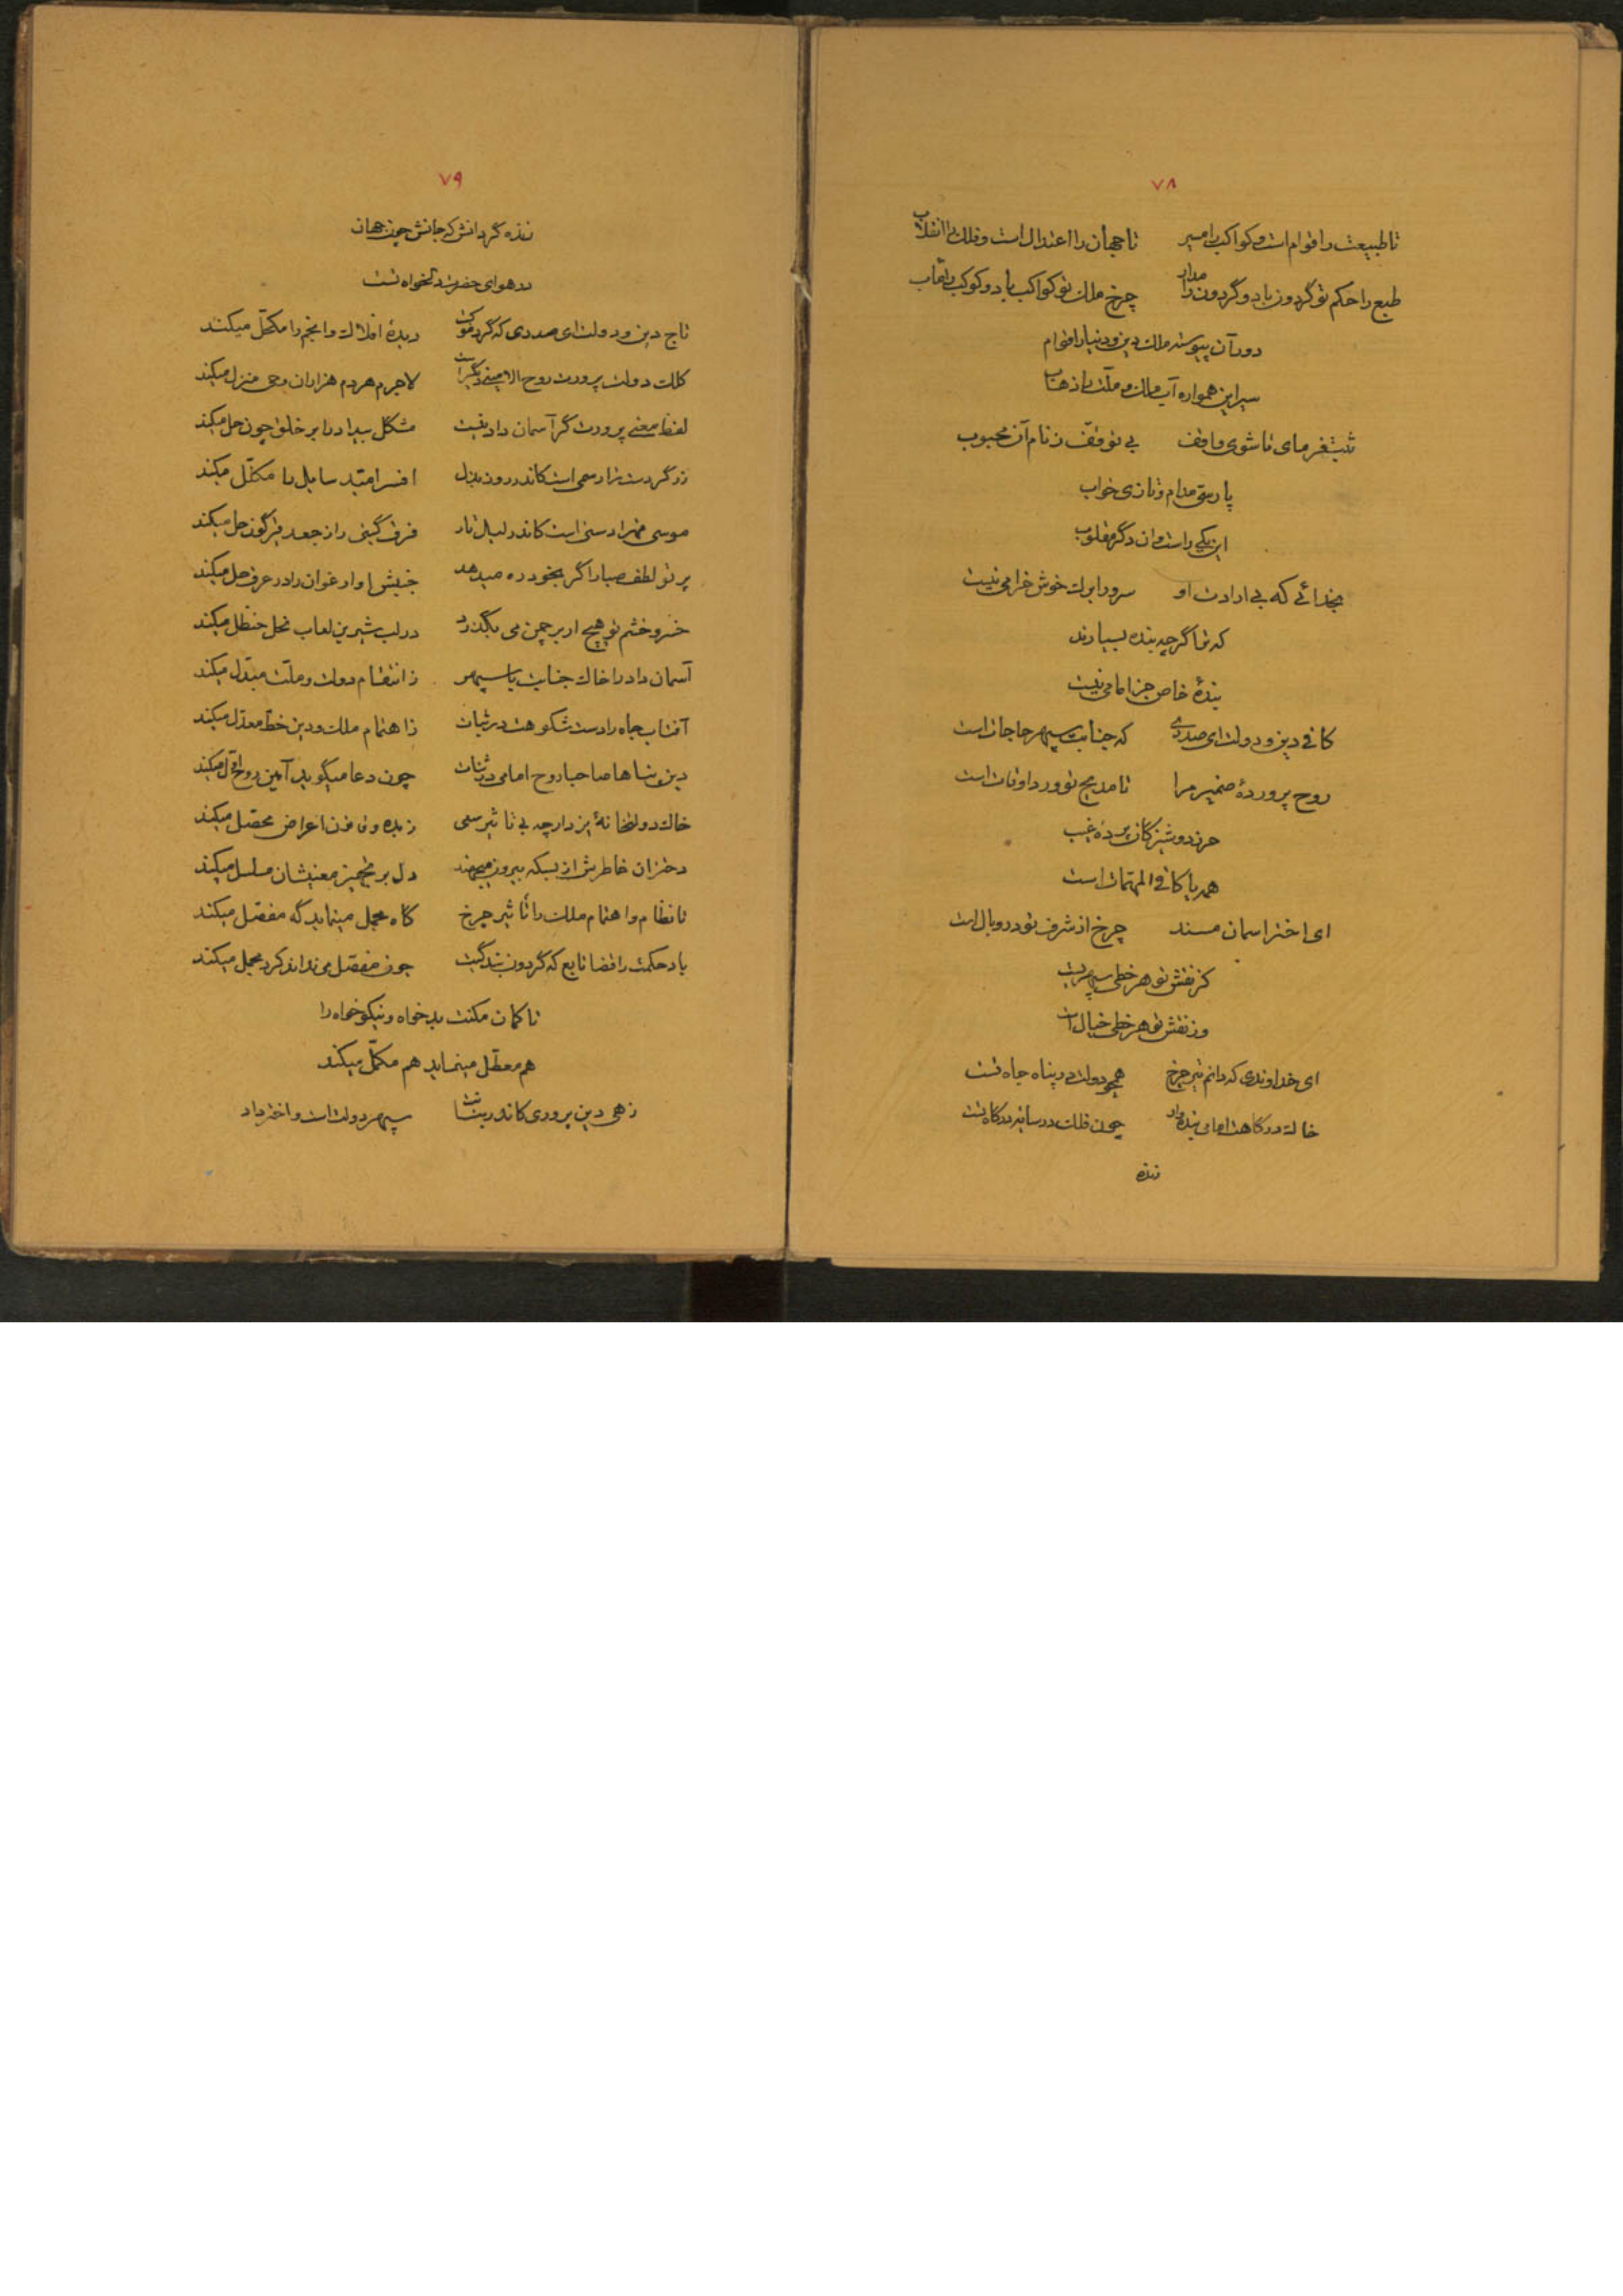 ۷۸
تا طبیعت را قوام است و کواکب را مسیر تا جهان را اعتدال است و فلک را انقلاب
طبع را حکم تو گردون باد و گردون را مدار چرخ ملک تو کواکب باد و کوکب
دور آن پیوسته ملک دین و دنیا را قوام
سیر این همواره آب ملک و ملت را ذهاب
تا شوی واقف بی توقف ز نام آن محبوب
پارسی مدام و تازی خواب
این یکی راست وان دگر مقلوب
بخدائی که بی ارادت او سرو را بر لب خوش خرامی نیست
که ترا گرچه بنده بسیارند
بندهٔ خاص جز امامی نیست
کافی دین و دولت ای صدری که جنابت سپهر حاجات است
روح پروردهٔ ضمیر مرا تا مدیح تو ورد اوقات است
حرز دوشیزگان پردهٔ غیب
همه یا کافی المهمات است
ای اختر اسمان مسند چرخ از شرف تو در وبال است
کز نقش تو هر خطی
وز نقش تو هر خطی خیال است
ای خداوندی که دانم تیر چرخ همچو دولت در پناه جاه تست
خاک درگاهت امامی بنده وار چون فلک در سایه درگاه تست
زنده
۷۹
زنده گردانش که جانش چون جهان
در هوای حضرت دلخواه تست
تاج دین و دولت ای صدری که گرد موکبت دیدهٔ افلاک و انجم را مکحّل میکند
کلک دولت پرورت روح الامینی دیگر است لاجرم هر دم هزاران وحی منزل میکند
لفظ معنی پرورت گر آسمان داد نیست مشکل بیداد را بر خلق چون حل میکند
زر گردت را رسمی است کاندر روز بذل افسر امّید سایل را مکلّل میکند
موسی است کاندر لیل تار فرق گیتی را ز جعد قیرگون حل میکند
پرتو لطف صبا را گر بخود ره میدهد و ارغوان را در عرق حل میکند
خسرو خشم تو هیچ ار بر چمن می بگذرد در لب شیرین لعاب نحل حنظل میکند
آسمان داد را خاک جنابت یا سپهر ز انتقام دولت و ملّت مبدّل میکند
آفتاب جاه را دست شکوهت در ثبات ز اهتمام ملک و دین خط معدّل میکند
دین پناها صاحبا روح امامی در ثنات چون دعا میگوید آمین روح اوّل میکند
خاک دولتخانهٔ ار چه بی تاثیر سعی زبده ون اعراض محصّل میکند
دختران خاطرش از بسکه بیرون میجهند دل بر معنیشان مسلسل میکند
تا نظام و اهتمام ملک را تاثیر چرخ گاه مجمل مینماید گه مفصّل میکند
باد حکمت را قضا تابع که گردون بندگیت چون مفصّل می نداند کرد مجمل میکند
تا کمان مکنت بدخواه و نیکوخواه را
هم معطّل مینماید هم مکمّل میکند
زهی دین پروری کاندر سپهر دولت است و اختر داد